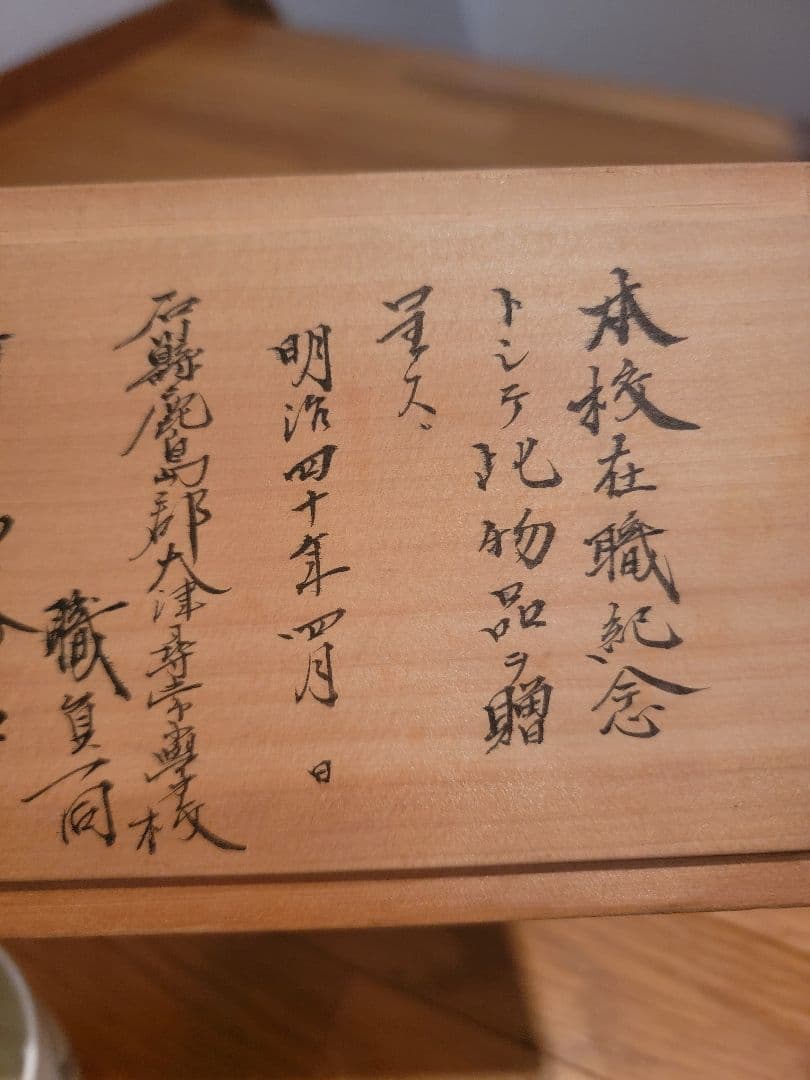 本校在職紀念
トシテ此物品ヲ贈
呈ス、
明治四十年四月 日
石縣鹿島郡大津尋常學校
職員一同